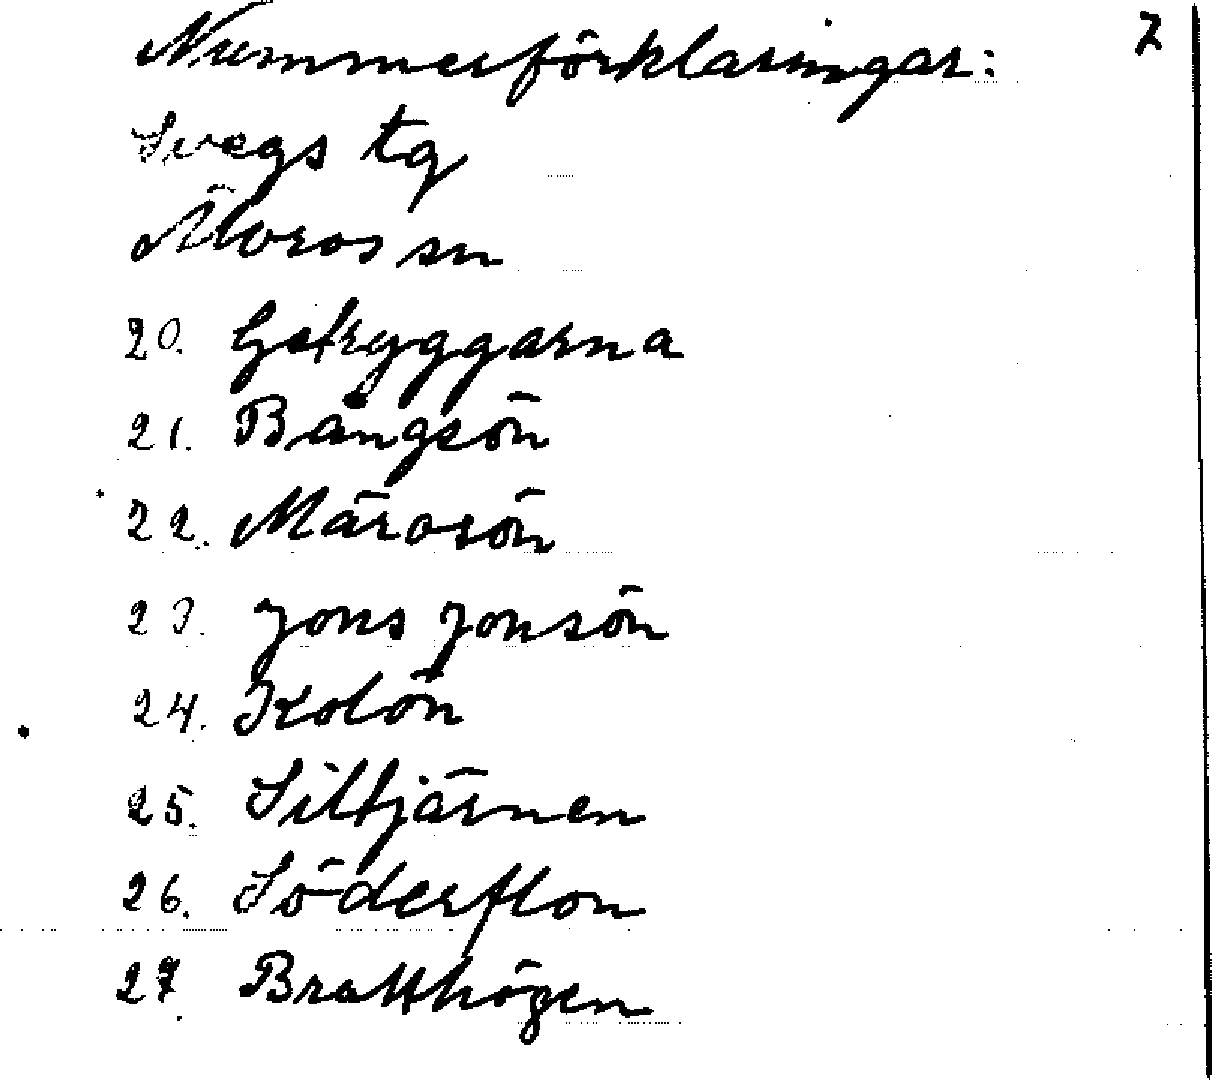 Nummerförklaringar: 7
Svegs tg
Älvros sn
20. Getryggarna
21. Bängsön
22. Märasön
23. Jons Jonsön
24. Kolön
25. Siltjärnen
26. Söderflon
27 Bratthögen